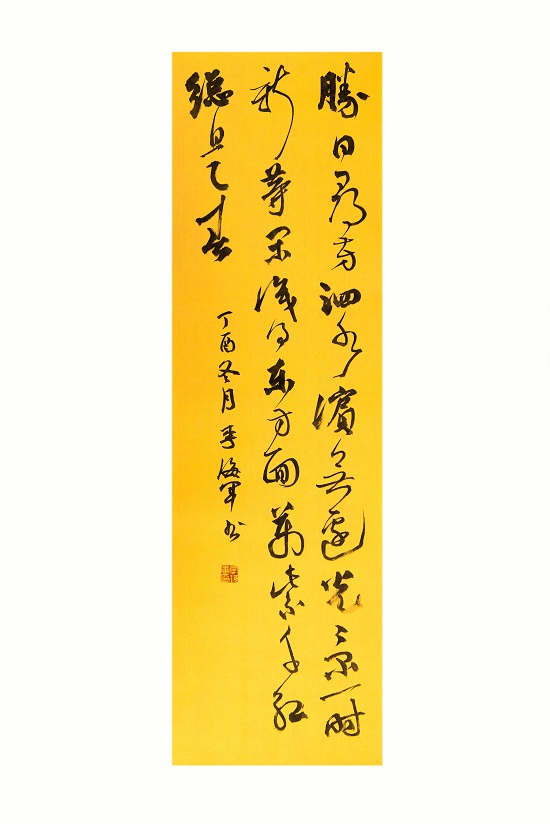 勝日尋芳泗水濱無邊光景一時
新等閒識得東方面萬紫千紅
總是春
丁酉冬月李海軍书